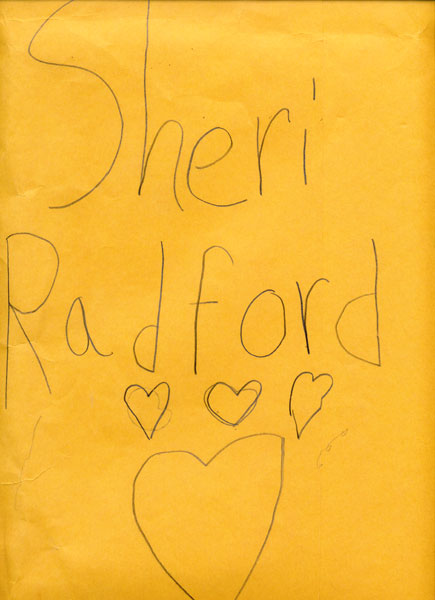 Sheri
Radford